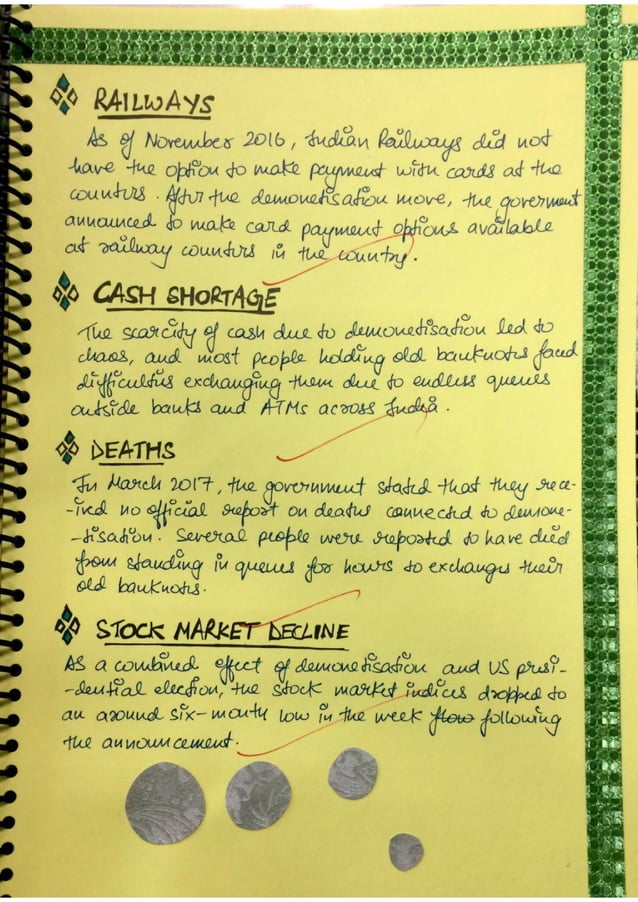 RAILWAYS
As of November 2016, Indian Railways did not
have the option to make payment with cards at the
counters. After the demonetisation move, the goverment
announced to make card payment options available
at railway counters in the country.
CASH SHORTAGE
The scarcity of cash due to demonetisation led to
chaos, and most people holding old banknotes faced
difficulties exchanging them due to endless queues
outside banks and ATMs across India.
DEATHS
In March 2017, the government stated that they rece-
-ived no official report on deaths connected to demone-
-tisation. Several people were reported to have died
from standing in queues for hours to exchanges their
old banknotes.
STOCK MARKET DECLINE
As a combined effect of demonetisation and US presi-
-dential election, the stock market indices dropped to
an around six-month low in the week following
the announcement.